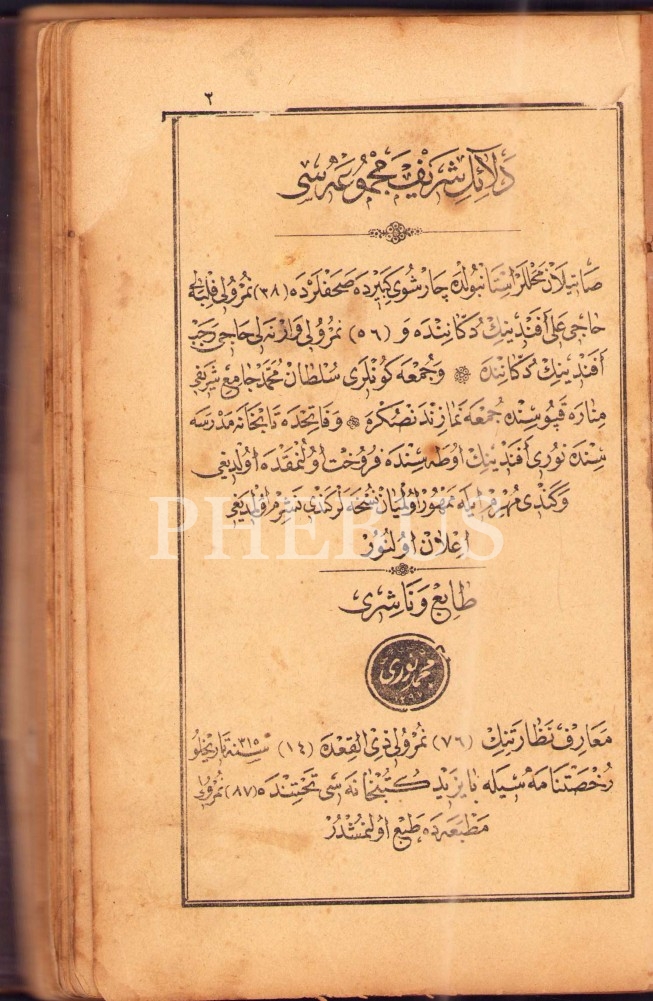 ٢
دَلَائِلِ شَرِيفْ مَجْمُوعَهسِى
صَاتِيلَانْ مَحَلْلَرْ اِسْتَانْبُولْدَه چَارْشُوىِ كَبِيرْدَه صَحَّفْلَرْدَه (٣٨) نُمْرُولِى فِلِبَهلِى
حَاجِى عَلِى أَفَنْدِينِكْ دُكَّانِنْدَه وَ (٥٦) نُمْرُولِى وَارْنَهلِى حَاجِى رَجَبْ
أَفَنْدِينِكْ دُكَّانِنْدَه وَجُمْعَه كُونْلَرِى سُلْطَانْ مُحَمَّدْ جَامِعِ شَرِيفِى
مِنَارَه قَپُوسِنْدَه جُمْعَه نَمَازِنْدَنْصُكْرَه وَفَاتِحْدَه تَابْخَانَه مَدْرَسَه
سِنْدَه نُورِى أَفَنْدِينِكْ اُوطَهسِنْدَه فُرُوخْتْ اُولُنْمَقْدَه اُولْدِيغِى
وَكَنْدِى مُهْرُمْ اِيلَه مَمْهُورْ اُولْمِيَانْ نُسْخَهلَرْ كَنْدِى نَشْرِمْ اُولْمَدِيغِى
اِعْلَانْ اُولُنُورْ
طَابِعْ وَنَاشِرِى
مُحَمَّد نُورِى
مَعَارِفْ نَظَارَتِنِكْ (٧٦) نُمْرُولِى ذِى الْقَعْدَه (١٤) سَنَه ٣١٥ تَارِيخْلُو
رُخْصَتْنَامَهسِيلَه بَايَزِيدْ كُتُبْخَانَهسِى تَحْتِنْدَه (٨٧) نُمْرُولِى
مَطْبَعَهدَه طَبْعْ اُولِنْمِشْدُرْ
PHEBUS